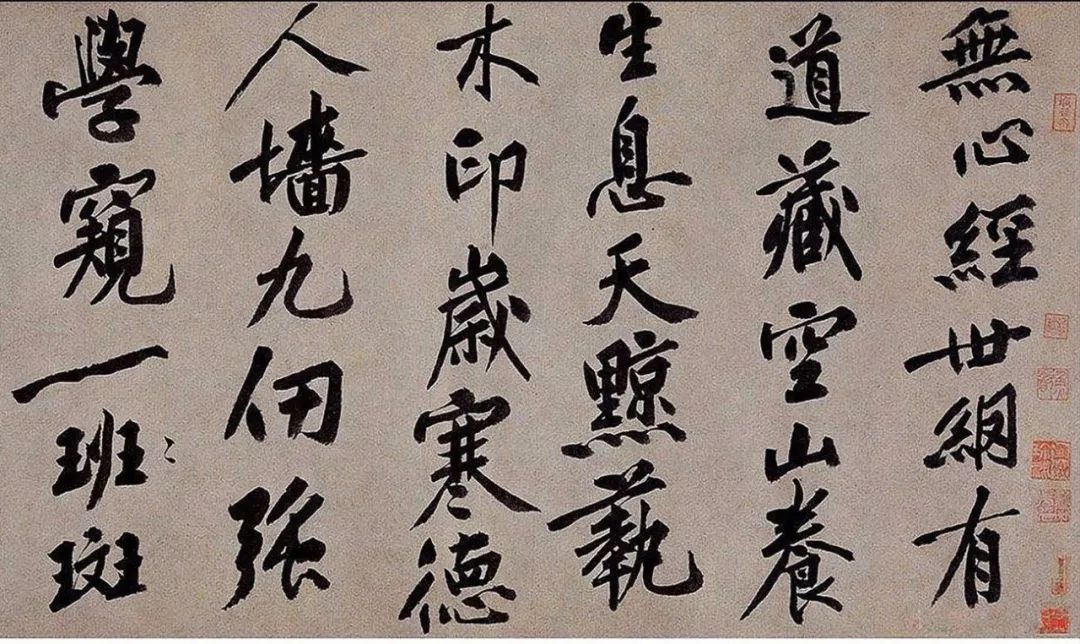 無心經世網有
道藏空山養
生息天黥蓺
木印歲寒德
人墻九仞強
學窺一班斑